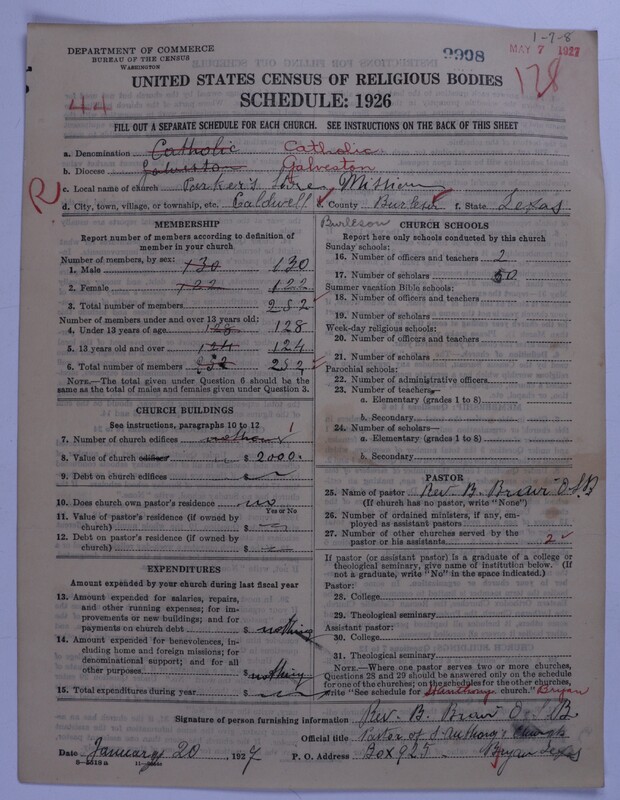 1-7-8
DEPARTMENT OF COMMERCE
BUREAU OF THE CENSUS
WASHINGTON
9998
MAY 7 1927
178
UNITED STATES CENSUS OF RELIGIOUS BODIES
44
SCHEDULE: 1926
FILL OUT A SEPARATE SCHEDULE FOR EACH CHURCH. SEE INSTRUCTIONS ON THE BACK OF THIS SHEET
a. Denomination Catholic Catholic
b. Diocese Galveston Galveston
c. Local name of church Parker's Mission
R
d. City, town, village, or township, etc. Caldwell e. County Burleson f. State Texas
Burleson
MEMBERSHIP
Report number of members according to definition of member in your church
Number of members, by sex:
1. Male 130 130
2. Female 122 122
3. Total number of members 252
Number of members under and over 13 years old:
4. Under 13 years of age 128 128
5. 13 years old and over 124 124
6. Total number of members 252 252
NOTE.—The total given under Question 6 should be the same as the total of males and females given under Question 3.
CHURCH BUILDINGS
See instructions, paragraphs 10 to 12
7. Number of church edifices 1
8. Value of church edifices $ 2000.
9. Debt on church edifices $
10. Does church own pastor's residence no
Yes or No
11. Value of pastor's residence (if owned by church) $
12. Debt on pastor's residence (if owned by church) $
EXPENDITURES
Amount expended by your church during last fiscal year
13. Amount expended for salaries, repairs, and other running expenses; for improvements or new buildings; and for payments on church debt $ nothing
14. Amount expended for benevolences, including home and foreign missions; for denominational support; and for all other purposes $ nothing
15. Total expenditures during year $
CHURCH SCHOOLS
Report here only schools conducted by this church
Sunday schools:
16. Number of officers and teachers 2
17. Number of scholars 50
Summer vacation Bible schools:
18. Number of officers and teachers
19. Number of scholars
Week-day religious schools:
20. Number of officers and teachers
21. Number of scholars
Parochial schools:
22. Number of administrative officers
23. Number of teachers—
a. Elementary (grades 1 to 8)
b. Secondary
24. Number of scholars—
a. Elementary (grades 1 to 8)
b. Secondary
PASTOR
25. Name of pastor Rev. B.
(If church has no pastor, write "None")
26. Number of ordained ministers, if any, employed as assistant pastors
27. Number of other churches served by the pastor or his assistants 2
If pastor (or assistant pastor) is a graduate of a college or theological seminary, give name of institution below. (If not a graduate, write "No" in the space indicated.)
Pastor:
28. College
29. Theological seminary
Assistant pastor:
30. College
31. Theological seminary
NOTE.—Where one pastor serves two or more churches, Questions 28 and 29 should be answered only on the schedule for one of the churches; on the schedules for the other churches, write "See schedule for St Anthony church." Bryan
Signature of person furnishing information Rev. B.
Official title Pastor of S Anthony's Church
Date January 20, 1927 P. O. Address Box 925 Bryan Texas
8—5513a